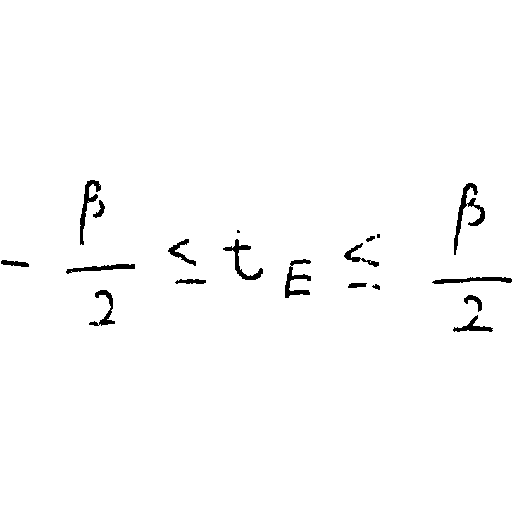 $-\frac{\beta}{2} \leq t_E \leq \frac{\beta}{2}$